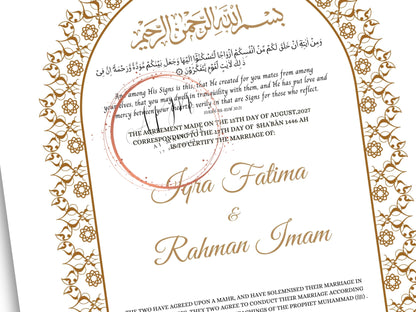 بسم الله الرحمن الرحيم
وَمِنْ آيَاتِهِ أَنْ خَلَقَ لَكُم مِّنْ أَنفُسِكُمْ أَزْوَاجًا لِّتَسْكُنُوا إِلَيْهَا وَجَعَلَ بَيْنَكُم مَّوَدَّةً وَرَحْمَةً إِنَّ فِي
ذَٰلِكَ لَآيَاتٍ لِّقَوْمٍ يَتَفَكَّرُونَ
And among His Signs is this, that He created for you mates from among
your elves, that you may dwell in tranquility with them, and He has put love and
mercy between your (hearts): verily in that are Signs for those who reflect.
THE AGREEMENT MADE ON THE 15TH DAY OF AUGUST,2027
CORRESPONDING TO THE 12TH DAY OF SHA'BĀN 1446 AH
IS TO CERTIFY THE MARRIAGE OF:
Iqra Fatima
&
Rahman Imam
THE TWO HAVE AGREED UPON A MAHR, AND HAVE SOLEMNISED THEIR MARRIAGE IN
THEY TWO AGREE TO CONDUCT THEIR MARRIAGE ACCORDING
TEACHINGS OF THE PROPHET MUHAMMAD (ﷺ).